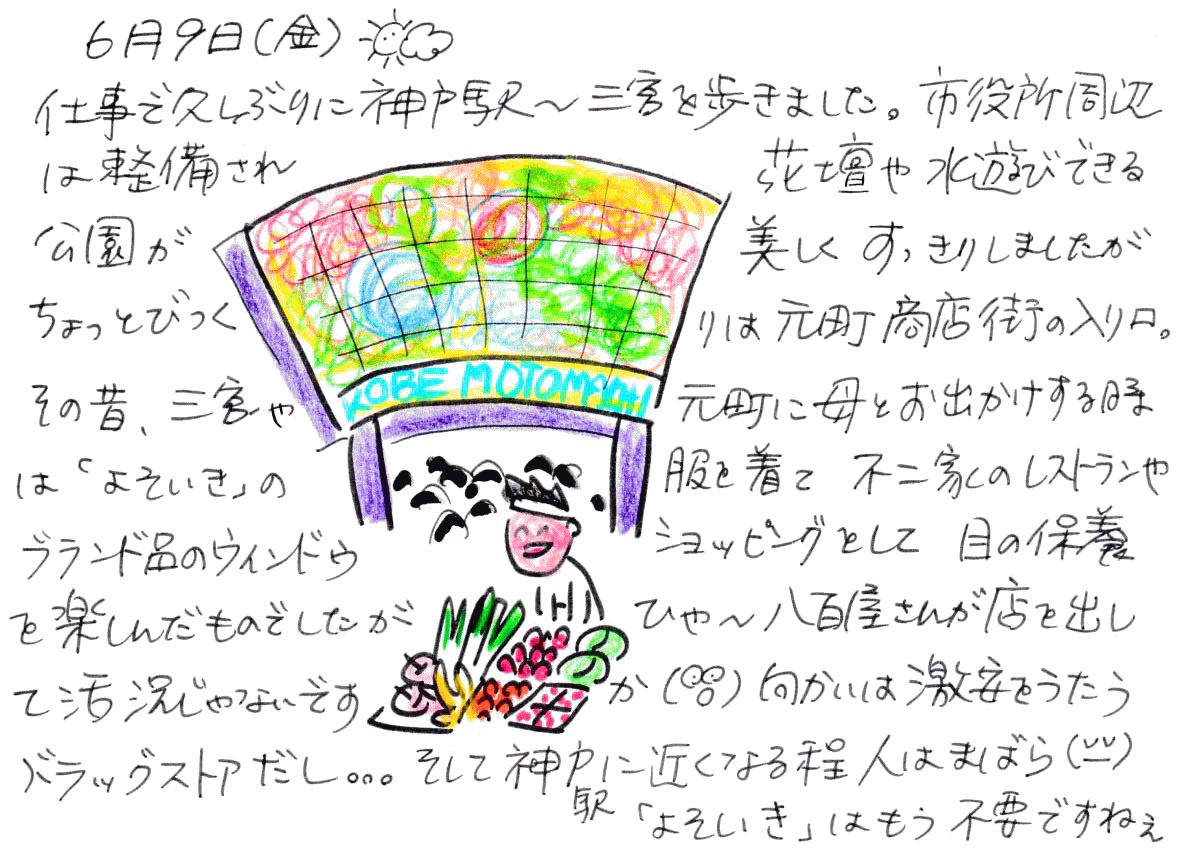 6月9日(金)
仕事で久しぶりに神戸駅〜三宮を歩きました。市役所周辺
は整備され 花壇や水遊びできる
公園が 美しくすっきりしましたが
ちょっとびっく りは元町商店街の入り口。
KOBE MOTOMACHI
その昔、三宮や 元町に母とお出かけする時
は「よそいき」の 服を着て不二家のレストランや
ブランド品のウィンドウ ショッピングとして目の保養
を楽しんだものでしたが ひゃ〜八百屋さんが店を出し
て活況じゃないです か 向かいは激安をうたう
ドラッグストアだし... そして神戸駅に近くなる程人はまばら
「よそいき」はもう不要ですねぇ